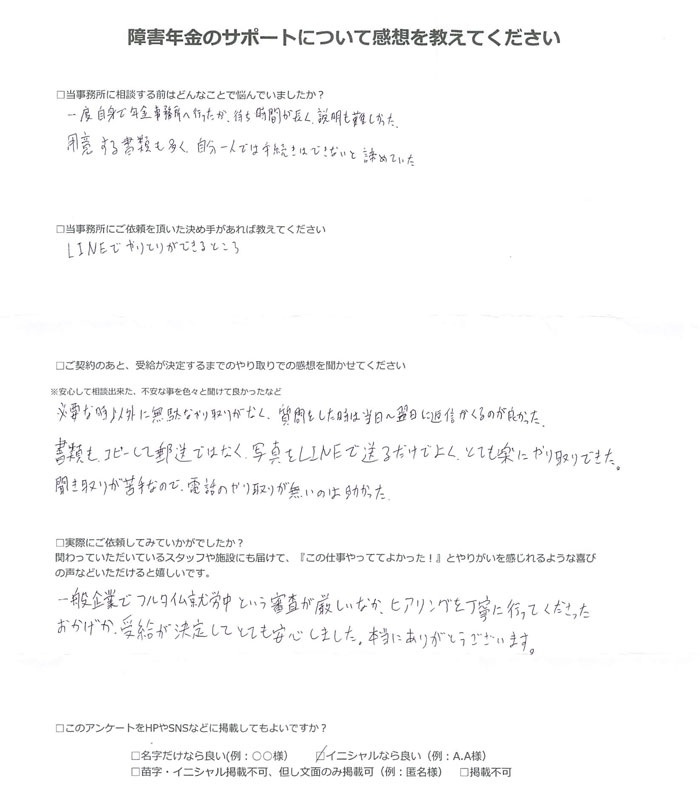 障害年金のサポートについて感想を教えてください
□当事務所に相談する前はどんなことで悩んでいましたか？
一度自身で年金事務所へ行ったが、待ち時間が長く、説明も難しかった。
用意する書類も多く、自分一人では手続きはできないと諦めていた
□当事務所にご依頼を頂いた決め手があれば教えてください
LINEでやりとりができるところ
□ご契約のあと、受給が決定するまでのやり取りでの感想を聞かせてください
※安心して相談出来た、不安な事を色々と聞けて良かったなど
必要な時以外に無駄なやり取りがなく、質問をした時は当日〜翌日に返信がくるのが良かった。
書類も、コピーして郵送ではなく、写真をLINEで送るだけでよく、とても楽にやり取りできた。
聞き取りが苦手なので、電話のやり取りが無いのは助かった。
□実際にご依頼してみていかがでしたか？
関わっていただいているスタッフや施設にも届けて、『この仕事やっててよかった！』とやりがいを感じれるような喜び
の声などいただけると嬉しいです。
一般企業でフルタイム就労中という審査が厳しいなか、ヒアリングを丁寧に行ってくださった
おかげか、受給が決定してとても安心しました。本当にありがとうございます。
□このアンケートをHPやSNSなどに掲載してもよいですか？
□名字だけなら良い(例：○○様） ☑イニシャルなら良い（例：A.A様）
□苗字・イニシャル掲載不可、但し文面のみ掲載可（例：匿名様） □掲載不可